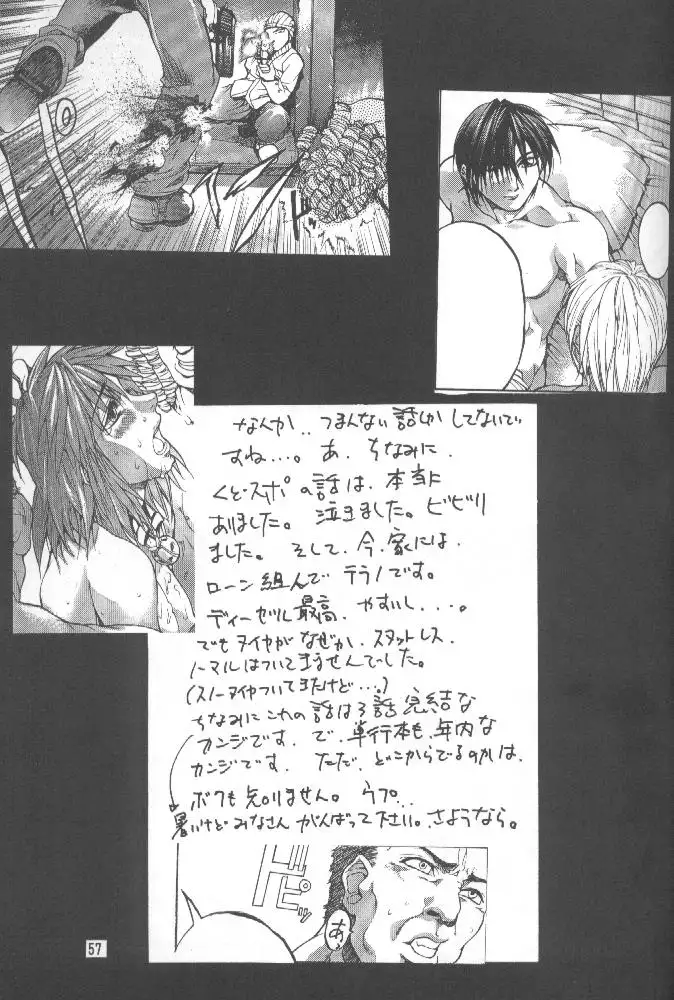 なんか..つまんない話しか してないで
すね…。あ、ちなみに、
くど・スポ の話は、本当に
ありました。泣きました。ビビリ
ました。そして、今、家には、
ローン組んで テラノです。
ディーゼル最高、やすいし、...。
でもタイヤがなぜか、スタットレス、
ノーマルはついてきませんでした。
(スノータイヤついてきたけど…。)
ちなみにこれの話は3話完結な
カンジです。で、単行本も、年内な
カンジです。ただ、どこからでるのかは、
ボクも知りません。ウプ...
暑いけど みなさん がんばって下さい。さようなら。
ピッ
あ、
57